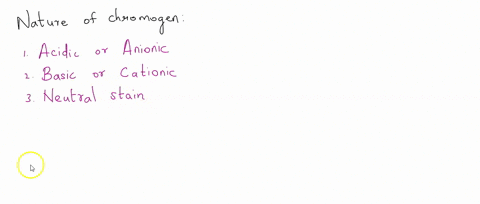 Nature of chromogen:
1. Acidic or Anionic
2. Basic or Cationic
3. Neutral stain